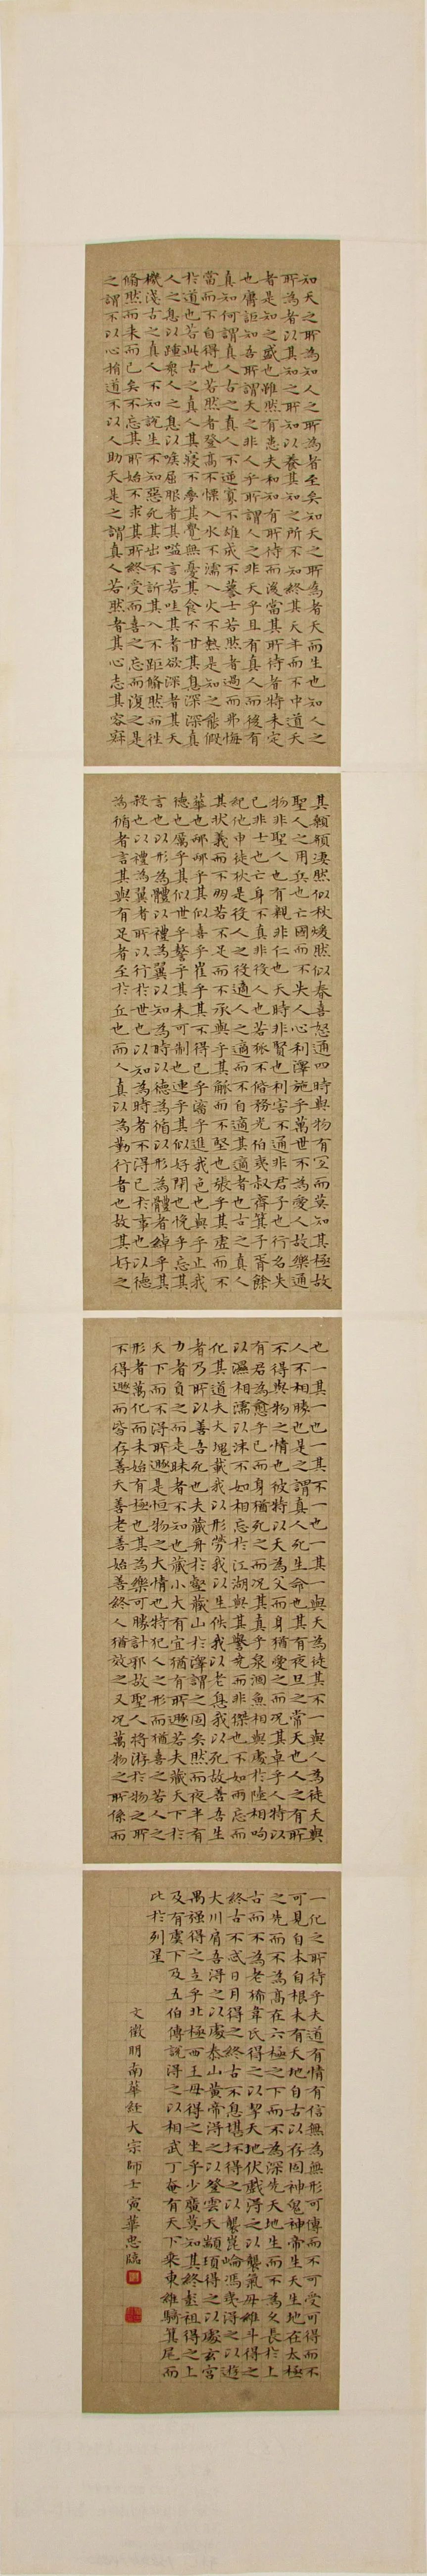 知天之所為知人之所為者至矣知天之所為者天而生也知人之
所為者以其知之所知以養其知之所不知終其天年而不中道夭
者是知之盛也雖然有患夫和知有所待而後當其所待者特未定
也庸詎知吾所謂天之非人乎所謂人之非天乎且有真人而後有
真知何謂真人古之真人不逆寡不雄成不謩士若然者過而弗悔
當而不自得也若然者登高不慄入水不濡入火不熱是知之能假
於道也若此古之真人其寢不夢其覺無憂其食不甘其息深深真
人之息以踵衆人之息以喉屈服者其嗌言若哇其耆欲深者其天
機淺古之真人不知說生不知惡死其出不訢其入不距翛然而往
翛然而来而已矣不忘其所始不求其所終受而喜之忘而復之是
之謂不以心捐道不以人助天是之謂真人若然者其心志其容寂
其顙頯淒然似秋煖然似春喜怒通四時與物有宜而莫知其極故
聖人之用兵也亡國而不失人心利澤施乎萬世不為愛人故樂通
物非聖人也有親非仁也天時非賢也利害不通非君子也行名失
己非士也亡身不真非役人也若狐不偕務光伯夷叔齊箕子胥餘
紀他申徒狄是役人之役適人之適而不自適其適者也古之真人
其狀義而不朋若不足而不承與乎其觚而不堅也張乎其虛而不
華也邴邴乎其似喜乎崔乎其不得已乎滀乎進我色也與乎止我
德也厲乎其似世乎謷乎其未可制也連乎其似好閉也悗乎忘其
言也以形為體以禮為翼以知為時以德為循以形為體者綽乎其
殺也以禮為翼者所以行於世也以知為時者不得已於事也以德
為循者言其與有足者至於丘也而人真以為勤行者也故其好之
也一其一也一其不一也一其一與天為徒其不一與人為徒天與
人不相勝也是之謂真人死生命也其有夜旦之常天也人之有所
不得與物之情也彼特以天為父而身猶愛之而况其卓乎人特以
有君為愈乎已而身猶死之而况其真乎泉涸魚相與處於陸相呴
以濕相濡以沫不如相忘於江湖與其譽堯而非桀也不如兩忘而
化其道夫大塊載我以形勞我以生佚我以老息我以死故善吾生
者乃所以善吾死也夫藏舟於壑藏山於澤謂之固矣然而夜半有
力者負之而走昧者不知也藏小大有宜猶有所遯若夫藏天下於
天下而不得所遯是恒物之大情也特犯人之形而猶喜之若人之
形者萬化而未始有極也其為樂可勝計邪故聖人將游於物之所
不得遯而皆存善夭善老善始善終人猶效之又况萬物之所係而
一化之所待乎夫道有情有信無為無形可傳而不可受可得而不
可見自本自根未有天地自古以存固神鬼神帝生天生地在太極
之先而不為高在六極之下而不為深先天地生而不為久長於上
古而不為老狶韋氏得之以挈天地伏戲得之以襲氣母維斗得之
終古不忒日月得之終古不息堪坏得之以襲崑崙馮夷得之以遊
大川肩吾得之以處泰山黃帝得之以登雲天顓頊得之以處玄宮
禺強得之立乎北極西王母得之坐乎少廣莫知其終彭祖得之上
及有虞下及五伯傅說得之以相武丁奄有天下乘東維騎箕尾而
比於列星
文徵明南華經大宗師壬寅華忠臨